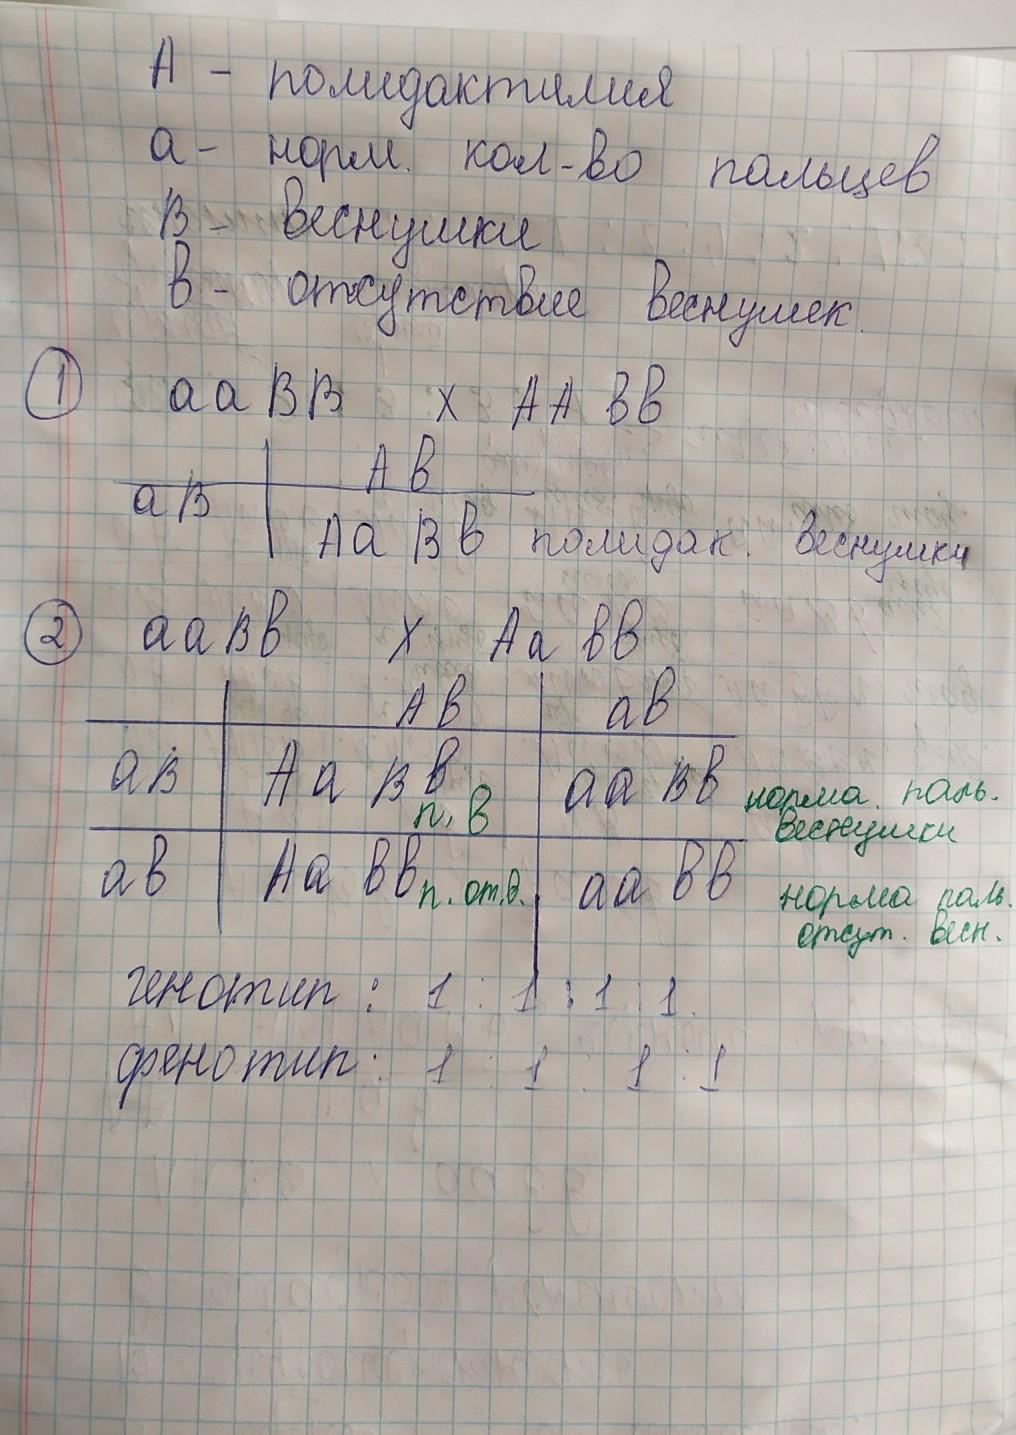 А - полидактилия
а - норм. кол-во пальцев
В - веснушки
в - отсутствие веснушек.
1 ааВВ х ААвв
Ав
аВ
АаВв полидак. веснушки
2 ааВв х Аавв
Ав ав
аВ АаВв ааВв норма. паль.
п, в веснушки
ав Аавв п. от.в. аавв норма паль.
отсут. весн.
генотип: 1 : 1 : 1 : 1.
фенотип: 1 : 1 : 1 : 1